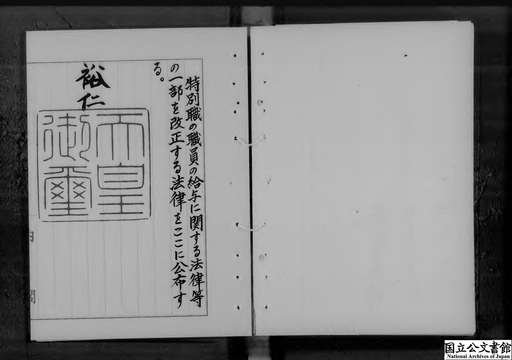 特別職の職員の給与に関する法律等
の一部を改正する法律をここに公布す
る。
裕仁
天皇
御璽
内閣
国立公文書館
National Archives of Japan